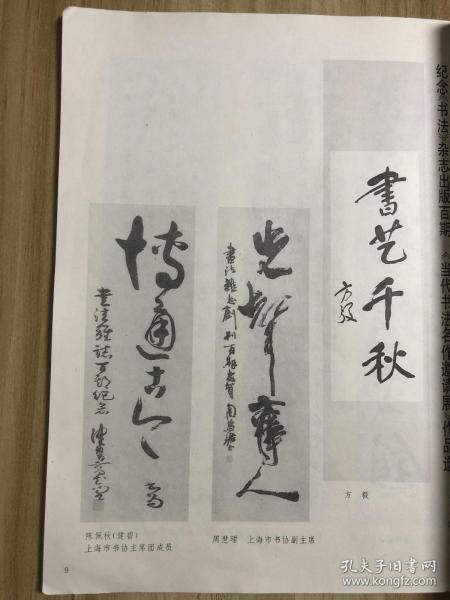 纪念《书法》杂志出版百期 《当代书法名作邀请展》作品选
書艺千秋
方毅
方 毅
先聲奪人
書法雜志創刊百期志賀 周慧珺
周慧珺 上海市书协副主席
博通古今
書法雜誌百期纪念
陈佩秋(健碧)
上海市书协主席团成员
9
孔夫子旧书网